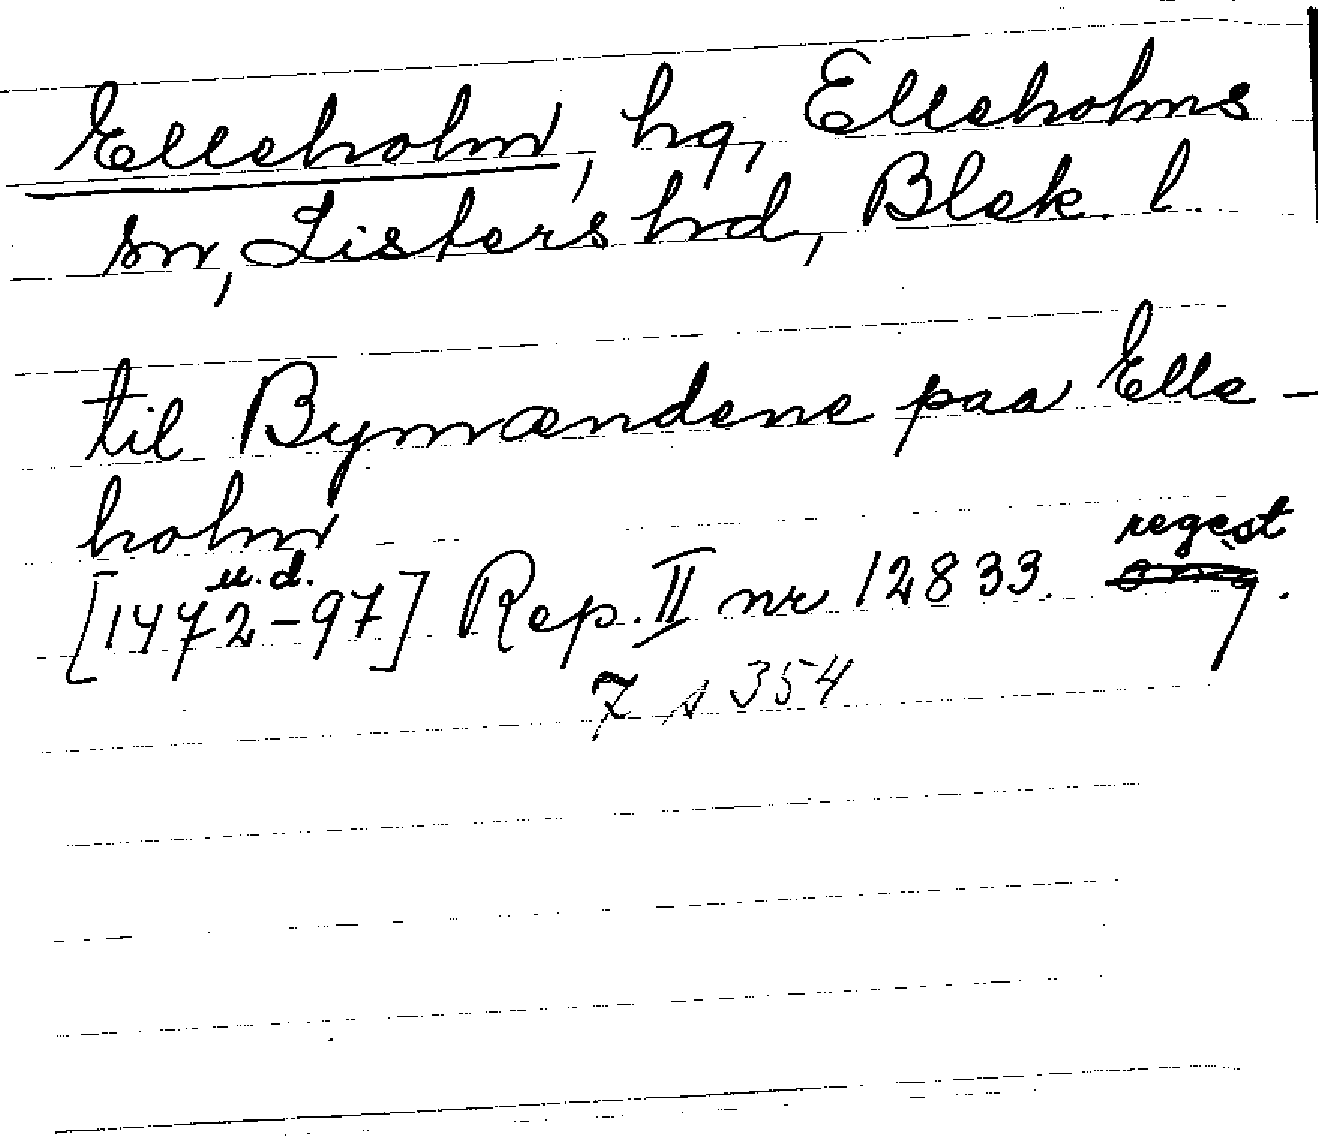 Elleholm, hg, Elleholms
sn, Listers hd, Blek. l.
til Bymændene paa Elle-
holm
u. d.
[1472-97] Rep. II nr 12833. regest.
7 s 354